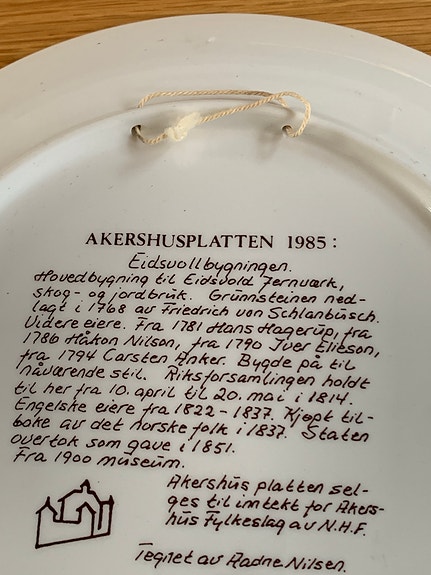 AKERSHUSPLATTEN 1985:
Eidsvollbygningen.
Hovedbygning til Eidsvold Jernværk,
skog- og jordbruk. Grunnsteinen ned-
lagt i 1768 av Friedrich von Schlanbusch.
Videre eiere. Fra 1781 Hans Hagerup, fra
1786 Håkon Nilson, fra 1790 Iver Elieson,
fra 1794 Carsten Anker. Bygde på til
nåværende stil. Riksforsamlingen holdt
til her fra 10. april til 20. mai i 1814.
Engelske eiere fra 1822 - 1837. Kjøpt til-
bake av det norske folk i 1837. Staten
overtok som gave i 1851.
Fra 1900 museum.
Akershus platten sel-
ges til inntekt for Akers-
hus Fylkeslag av N.H.F.
Tegnet av Aadne Nilsen.